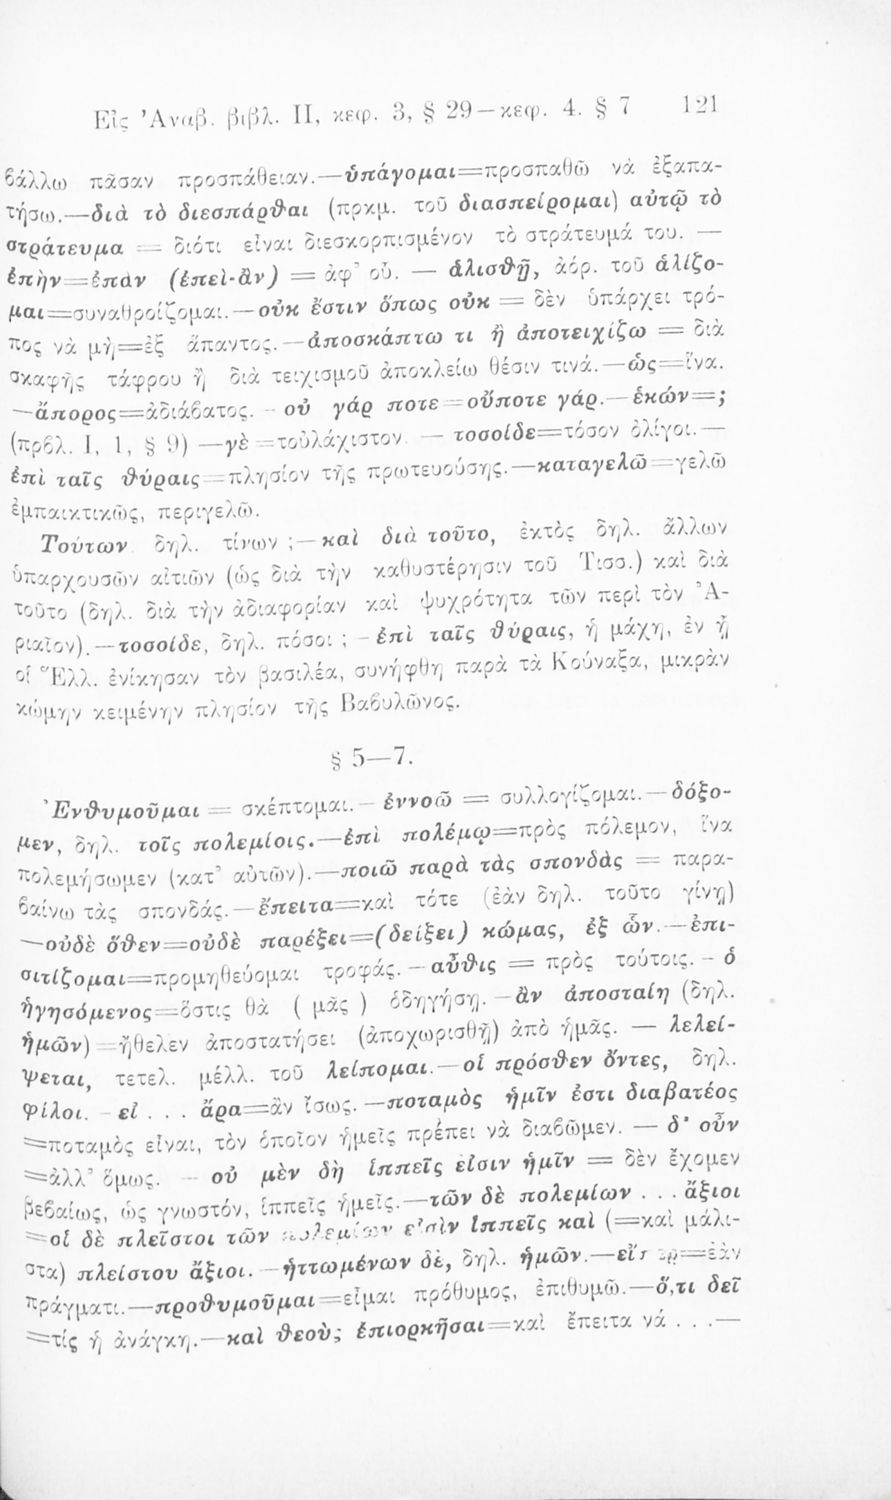 Εἰς Ἀναβ. βιβλ. II, κεφ. 3, § 29 — κεφ. 4. § 7 121
βάλλω πᾶσαν προσπάθειαν.—ὑπάγομαι=προσπαθῶ νὰ ἐξαπα-
τήσω.—διὰ τὸ διεσπάρθαι (πρκμ. τοῦ διασπείρομαι) αὐτῷ τὸ
στράτευμα = διότι εἶναι διεσκορπισμένον τὸ στράτευμά του. —
ἐπὴν=ἐπὰν (ἐπεὶ-ἂν) = ἀφ' οὗ. — ἁλισθῇ, ἀόρ. τοῦ ἁλίζο-
μαι=συναθροίζομαι.—οὐκ ἔστιν ὅπως οὐκ = δὲν ὑπάρχει τρό-
πος νὰ μὴ=ἐξ ἅπαντος.—ἀποσκάπτω τι ἢ ἀποτειχίζω = διὰ
σκαφῆς τάφρου ἢ διὰ τειχισμοῦ ἀποκλείω θέσιν τινά.—ὡς=ἵνα.
—ἄπορος=ἀδιάβατος. - οὐ γάρ ποτε=οὔποτε γάρ.—ἑκών=;
(πρβλ. I, 1, § 9) —γὲ=τοὐλάχιστον — τοσοίδε=τόσον ὀλίγοι.—
ἐπὶ ταῖς θύραις=πλησίον τῆς πρωτευούσης.—καταγελῶ=γελῶ
ἐμπαικτικῶς, περιγελῶ.
Τούτων δηλ. τίνων ;—καὶ διὰ τοῦτο, ἐκτὸς δηλ. ἄλλων
ὑπαρχουσῶν αἰτιῶν (ὡς διὰ τὴν καθυστέρησιν τοῦ Τισσ.) καὶ διὰ
τοῦτο (δηλ. διὰ τὴν ἀδιαφορίαν καὶ ψυχρότητα τῶν περὶ τὸν Ἀ-
ριαῖον).—τοσοίδε, δηλ. πόσοι ; - ἐπὶ ταῖς θύραις, ἡ μάχη, ἐν ᾗ
οἱ Ἕλλ. ἐνίκησαν τὸν βασιλέα, συνήφθη παρὰ τὰ Κούναξα, μικρὰν
κώμην κειμένην πλησίον τῆς Βαβυλῶνος.
§ 5—7.
Ἐνθυμοῦμαι = σκέπτομαι.— ἐννοῶ = συλλογίζομαι.—δόξο-
μεν, δηλ. τοῖς πολεμίοις.—ἐπὶ πολέμῳ=πρὸς πόλεμον, ἵνα
πολεμήσωμεν (κατ' αὐτῶν).—ποιῶ παρὰ τὰς σπονδὰς = παρα-
βαίνω τὰς σπονδάς.—ἔπειτα=καὶ τότε (ἐὰν δηλ. τοῦτο γίνῃ)
—οὐδὲ ὅθεν=οὐδὲ παρέξει=(δείξει) κώμας, ἐξ ὧν.—ἐπι-
σιτίζομαι=προμηθεύομαι τροφάς.—αὖθις = πρὸς τούτοις. - ὁ
ἡγησόμενος=ὅστις θὰ ( μᾶς ) ὁδηγήσῃ.—ἂν ἀποσταίη (δηλ.
ἡμῶν)=ἤθελεν ἀποστατήσει (ἀποχωρισθῇ) ἀπὸ ἡμᾶς. — λελεί-
ψεται, τετελ. μέλλ. τοῦ λείπομαι.—οἱ πρόσθεν ὄντες, δηλ.
φίλοι. - εἰ . . . ἄρα=ἂν ἴσως.—ποταμὸς ἡμῖν ἐστι διαβατέος
=ποταμὸς εἶναι, τὸν ὁποῖον ἡμεῖς πρέπει νὰ διαβῶμεν. — δ' οὖν
=ἀλλ' ὅμως. - οὐ μὲν δὴ ἱππεῖς εἰσιν ἡμῖν = δὲν ἔχομεν
βεβαίως, ὡς γνωστόν, ἱππεῖς ἡμεῖς.—τῶν δὲ πολεμίων . . . ἄξιοι
=οἱ δὲ πλεῖστοι τῶν πολεμίων εἰσὶν ἱππεῖς καὶ (=καὶ μάλι-
στα) πλείστου ἄξιοι.—ἡττωμένων δὲ, δηλ. ἡμῶν.—=ἐὰν
πράγματι.—προθυμοῦμαι=εἶμαι πρόθυμος, ἐπιθυμῶ.—ὅ,τι δεῖ
=τίς ἡ ἀνάγκη.—καὶ θεοὺς ἐπιορκῆσαι=καὶ ἔπειτα νά . . .—